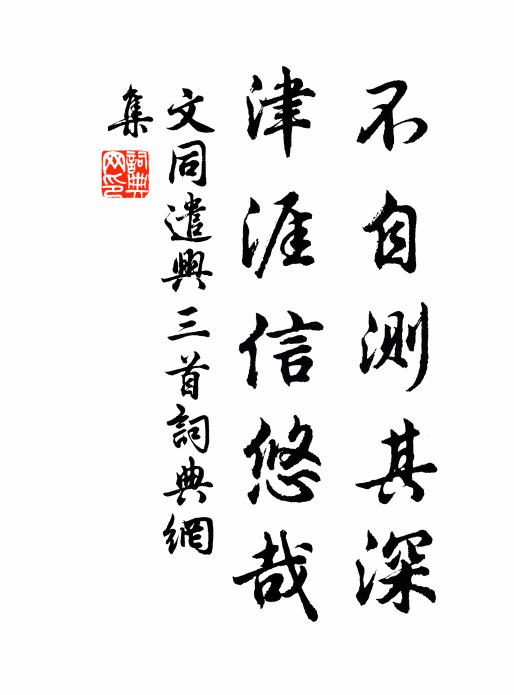 不自測其深
津涯信悠哉
文同遣興三首詞典網
集
詞典
网印